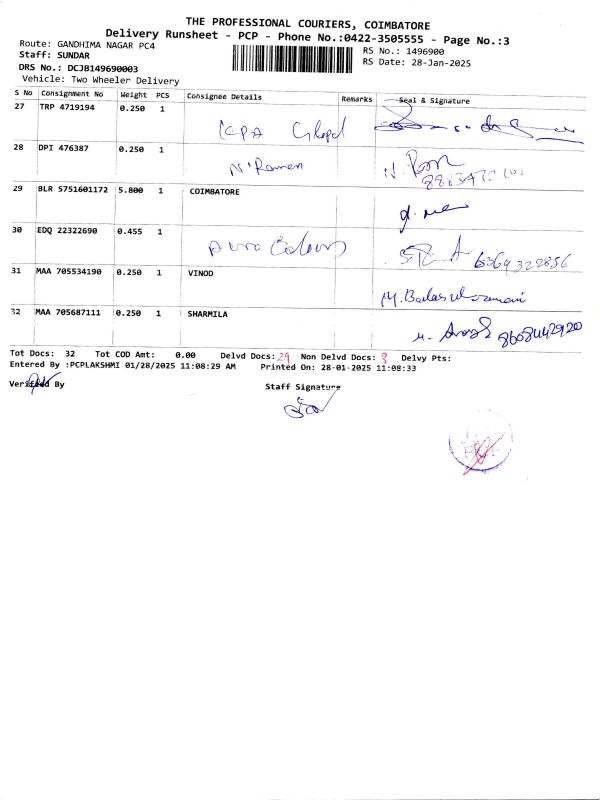 THE PROFESSIONAL COURIERS, COIMBATORE
Delivery Runsheet - PCP - Phone No.:0422-3505555 - Page No.:3
Route: GANDHIMA NAGAR PC4
RS No.: 1496900
Staff: SUNDAR
RS Date: 28-Jan-2025
DRS No.: DCJB149690003
Vehicle: Two Wheeler Delivery
S No Consignment No Weight PCS Consignee Details Remarks Seal & Signature
27 TRP 4719194 0.250 1
KPA
28 DPI 476387 0.250 1
N. Raman
29 BLR 5751601172 5.800 1 COIMBATORE
30 EDQ 22322690 0.455 1
Auro Colours 6369322856
31 MAA 705534190 0.250 1 VINOD
32 MAA 705687111 0.250 1 SHARMILA
8608442920
Tot Docs: 32 Tot COD Amt: 0.00 Delvd Docs: 29 Non Delvd Docs: 3 Delvy Pts:
Entered By :PCPLAKSHMI 01/28/2025 11:08:29 AM Printed On: 28-01-2025 11:08:33
Verified By
Staff Signature